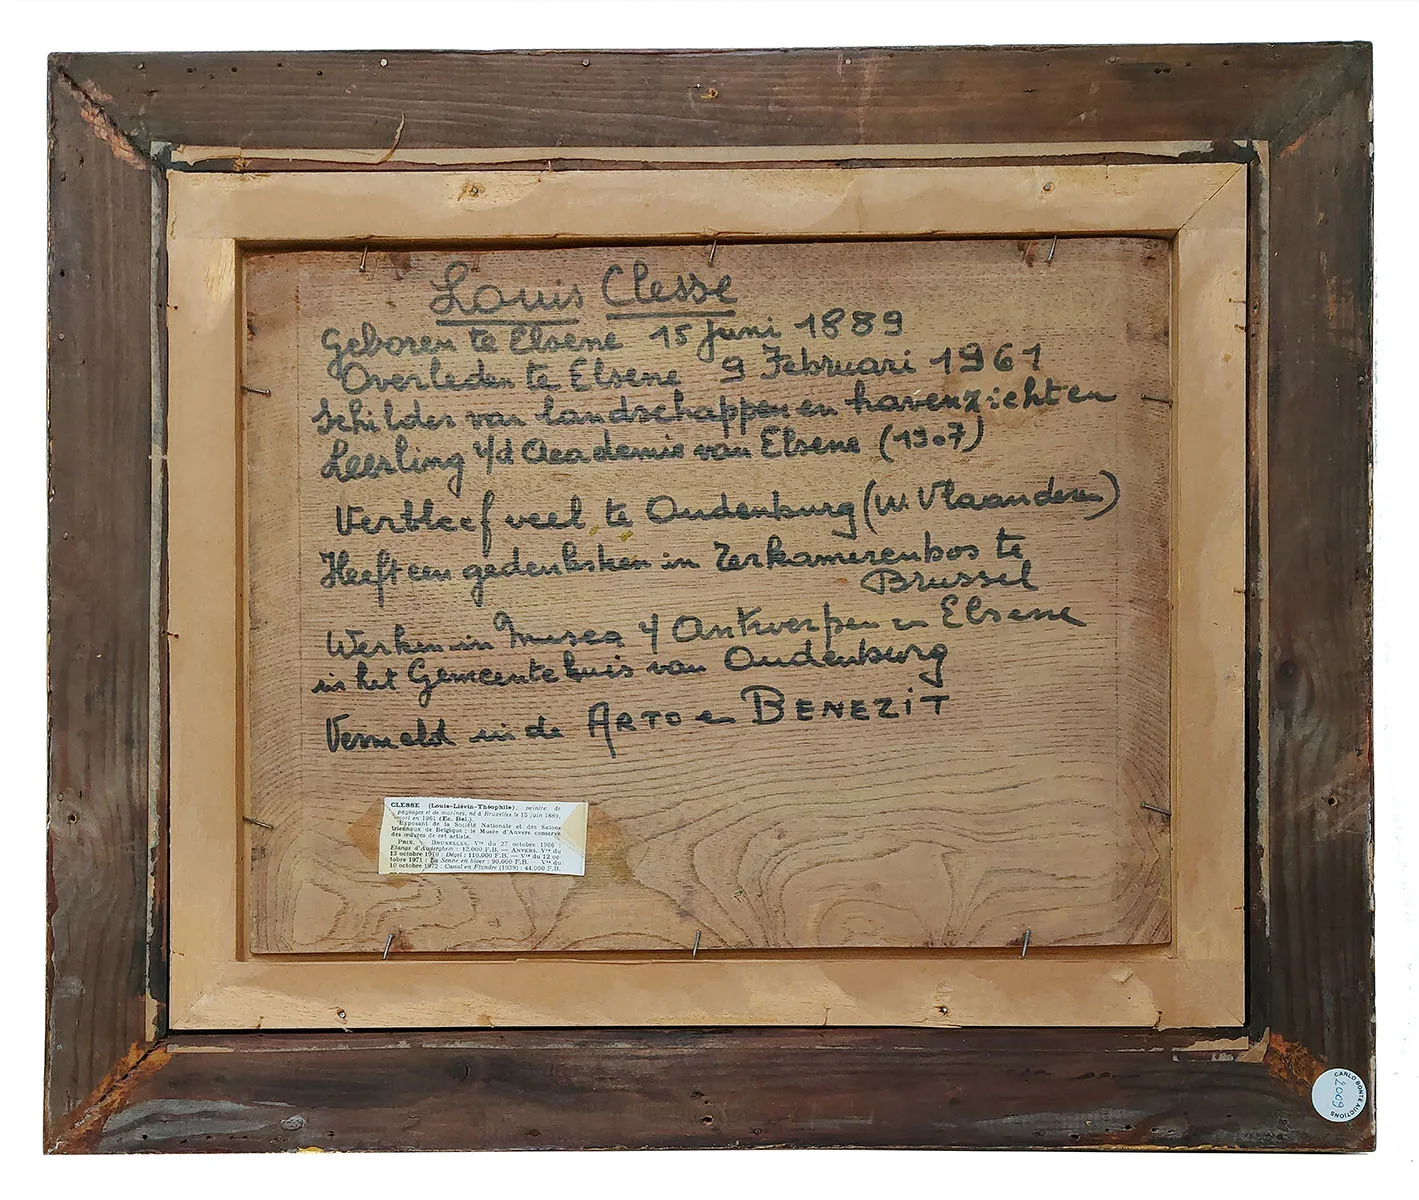 Louis Clesse
Geboren te Elsene 15 Juni 1889
Overleden te Elsene 9 Februari 1961
Schilder van landschappen en havenzichten
Leerling v/d Academie van Elsene (1907)
Verbleef veel te Oudenburg (W. Vlaanderen)
Heeft een gedenksteen in Terkamerenbos te
Brussel
Werken in Musea v Antwerpen en Elsene
in het Gemeentehuis van Oudenburg
Vermeld in de ARTO en BENEZIT
CLESSE (Louis-Liévin-Théophile), peintre de
paysages et de marines, né à Bruxelles le 15 juin 1889,
mort en 1961 (Ec. Bel.).
Exposant de la Société Nationale et des Salons
triennaux de Belgique; le Musée d'Anvers conserve
des œuvres de cet artiste.
PRIX. — BRUXELLES. Vte du 27 octobre 1966 :
Etangs d'Auderghem : 12.000 F.B. — ANVERS. Vte du
13 octobre 1970 : Dégel : 110.000 F.B. — Vte du 12 oc-
tobre 1971 : La Senne en hiver : 90.000 F.B. — Vte du
10 octobre 1972 : Canal en Flandre (1939) : 44.000 F.B.
CARLO BONTE AUCTIONS
2009